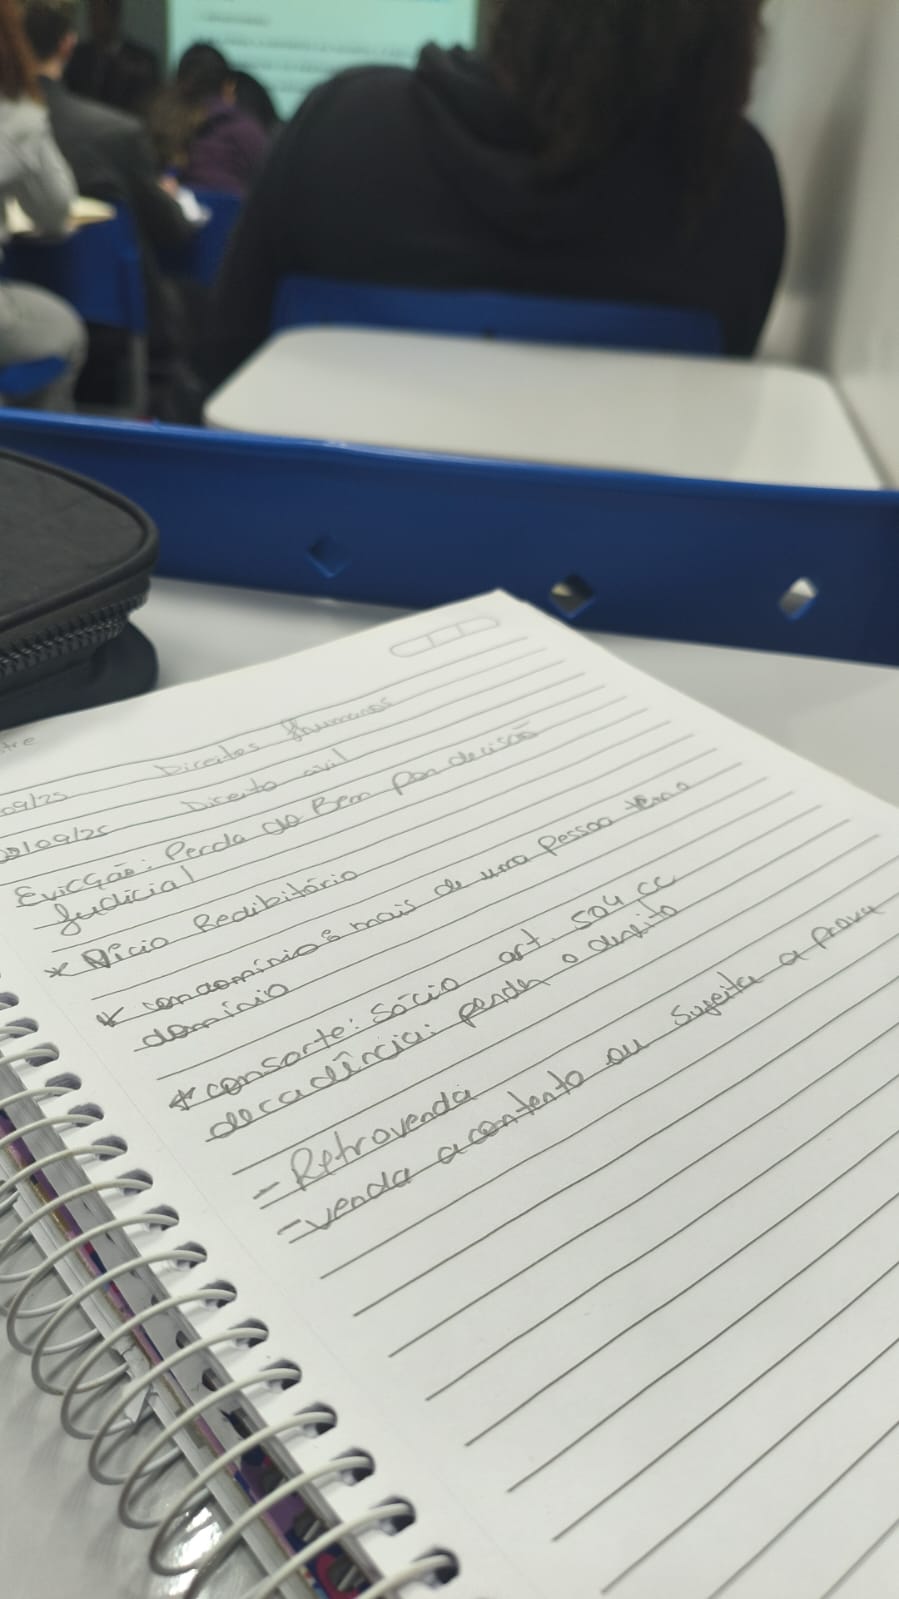 tre
09/25 Direitos Humanos
09/25 Direito civil
Evicção: Perda do Bem por decisão
Judicial
* Vício Redibitório
* condomínio: mais de uma pessoa tem o
domínio
* consorte: sócio art. 504 CC
decadência: perder o direito
- Retrovenda
- venda a contento ou sujeita a prova